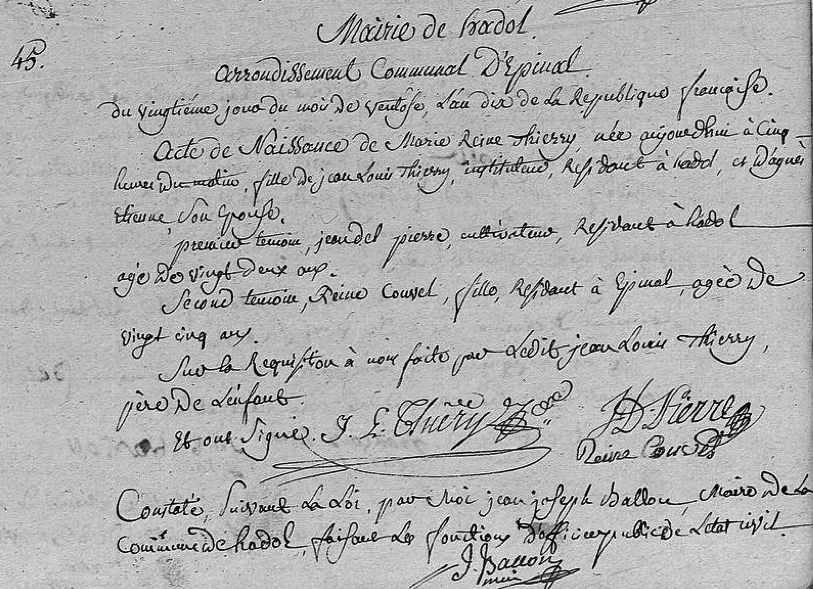 Mairie de hadol.
45.
arrondissement Communal D'Epinal
du vingtiéme jour du mois de ventôse, L'an dix de la Republique française.
Acte de Naissance de Marie Reine Thierry, née aujourdhui à Cinq
heures du matin, fille de jean Louis Thierry, instituteur, Residant à hadol, et D'agnès
Etienne Son Epouse.
premier temoin, jeandel pierre, cultivateur, Residant à hadol
agé de vingt deux ans.
Second temoin, Reine Couvel, fille, Residant à Epinal, agée de
vingt cinq ans.
Sur la Requisition à nous faite par Ledit jean Louis Thierry,
père de L'enfant
Et ont Signé. J. L. Thiéry JD. Pierre
Reine Couvel
Constaté, Suivant La Loi, par Moi jean joseph Ballon, Maire de La
Commune de hadol, faisant Les fonctions D'officier public de L'etat civil.
J. Ballon
maire